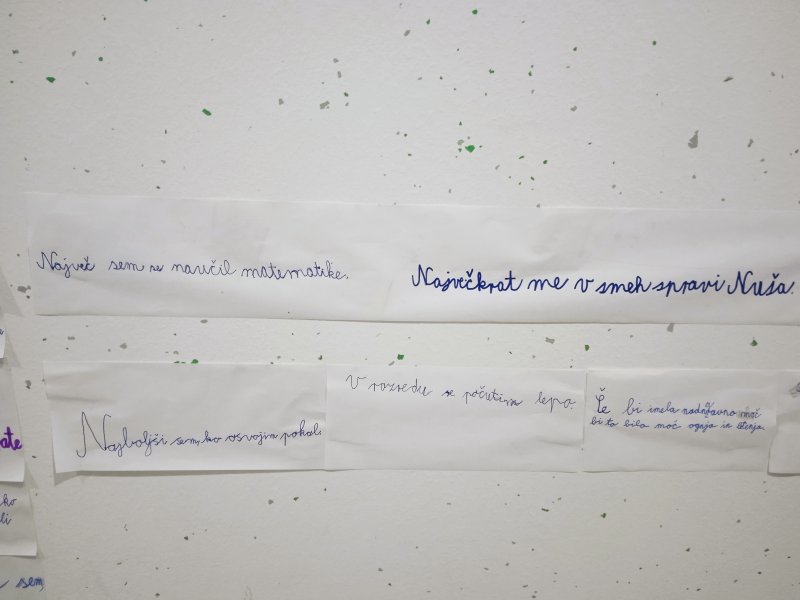 Največ sem se naučil matematike.
Največkrat me v smeh spravi Nuša.
Najboljši sem, ko osvojim pokal.
V razredu se počutim lepo.
Če bi imela nadnaravno moč
bi to bila moč ognja in letenja.
ate
ko
li
sem,